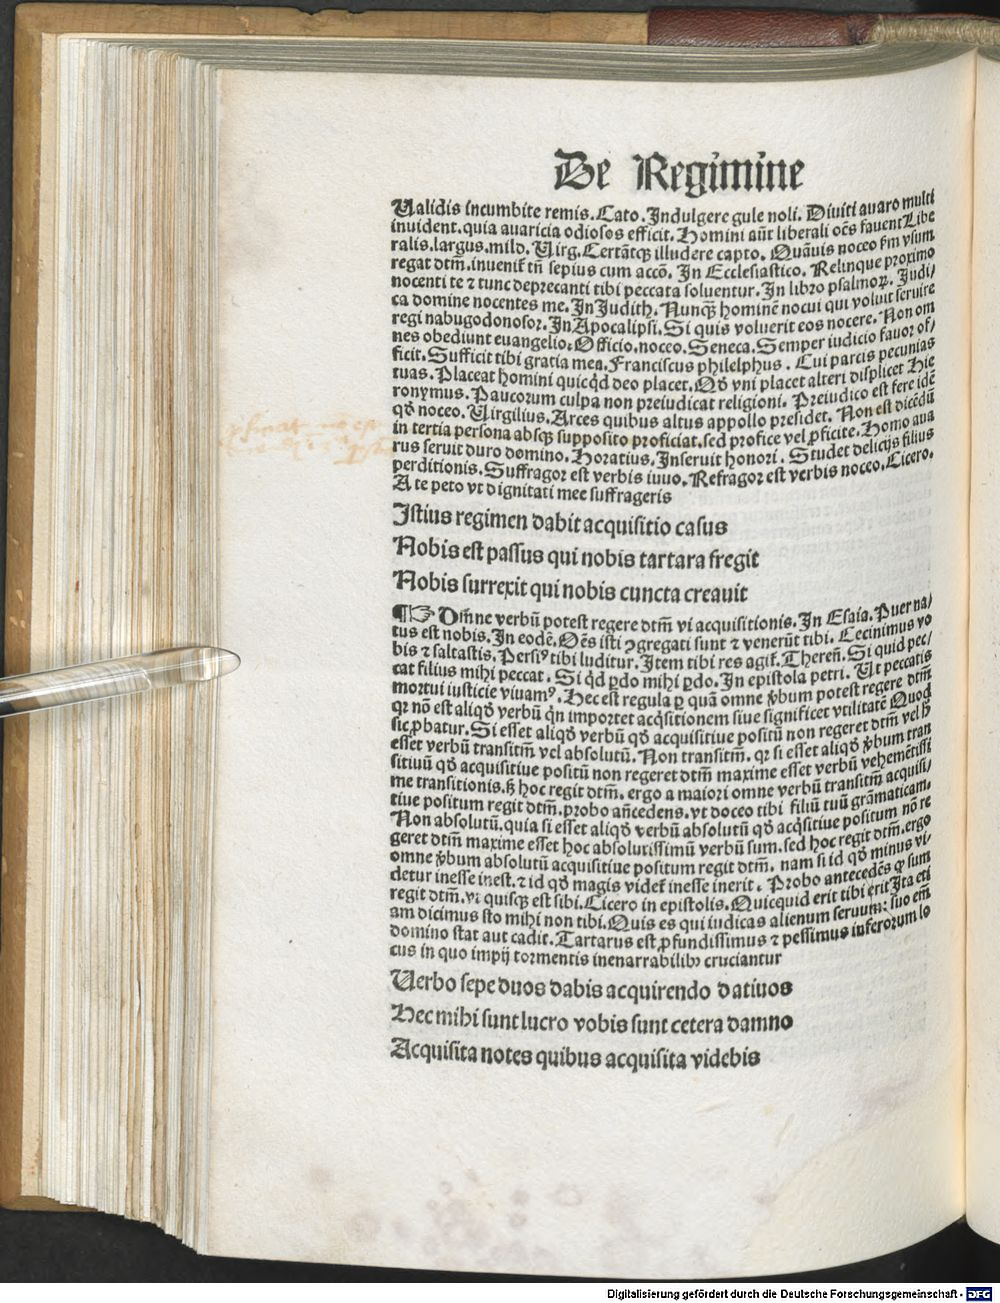 De Regimine
Ualidis incumbite remis. Cato. Indulgere gule noli. Diuiti auaro multi
inuident. quia auaricia odiosos efficit. Homini aūt liberali oēs fauent Libe
ralis. largus. mild. Uirg. Certātqꝫ illudere capto. Quāuis noceo ẜm vsum
regat dtm̄. inuenit̄ tn̄ sepius cum accō. In Ecclesiastico. Relinque proximo
nocenti te ⁊ tunc deprecanti tibi peccata soluentur. In libro psalmoꝝ. Judi/
ca domine nocentes me. In Judith. Nunqꝫ hominē nocui qui voluit seruire
regi nabugodonosor. In Apocalipsi. Si quis voluerit eos nocere. Non om
nes obediunt euangelio. Officio. noceo. Seneca. Semper iudicio fauor of/
ficit. Sufficit tibi gratia mea. Franciscus philelphus. Cui parcis pecunias
tuas. Placeat homini quicq̄d deo placet. Qđ vni placet alteri displicet Hie
ronymus. Paucorum culpa non preiudicat religioni. Preiudico est fere idē
qđ noceo. Uirgilius. Arces quibus altus appollo presidet. Non est dicēdū
in tertia persona absqꝫ supposito proficiat. sed profice vel ꝓficite. Homo aua
rus seruit duro domino. Horatius. Inseruit honori. Studet delicijs filius
perditionis. Suffragor est verbis iuuo. Refragor est verbis noceo. Cicero.
A te peto vt dignitati mee suffrageris
Istius regimen dabit acquisitio casus
Nobis est passus qui nobis tartara fregit
Nobis surrexit qui nobis cuncta creauit
¶☞ Om̄ne verbū potest regere dtm̄ vi acquisitionis. In Esaia. Puer na/
tus est nobis. In eodē. Oēs isti ꝯgregati sunt ⁊ venerūt tibi. Cecinimus vo
bis ⁊ saltastis. Persiꝰ tibi luditur. Item tibi res agit̄. Theren̄. Si quid pec/
cat filius mihi peccat. Si qđ ꝑdo mihi ꝑdo. In epistola petri. Ut peccatis
mortui iusticie viuamꝰ. Hec est regula ꝑ quā omne v̄bum potest regere dtm̄
qꝛ nō est aliqđ verbū qn̄ importet acq̄sitionem siue significet vtilitatē Quod
sic ꝓbatur. Si esset aliqđ verbū qđ acquisitiue positū non regeret dtm̄ vel ꝉꝫ
esset verbū transitm̄ vel absolutū. Non transitm̄. qꝛ si esset aliqđ v̄bum tran
sitiuū qđ acquisitiue positū non regeret dtm̄ maxime esset verbū vehemētissi
me transitionis. sꝫ hoc regit dtm̄. ergo a maiori omne verbū transitm̄ acquisi/
tiue positum regit dtm̄. probo añcedens. vt doceo tibi filiū tuū grāmaticam.
Non absolutū. quia si esset aliqđ verbū absolutū qđ acq̄sitiue positum nōre
geret dtm̄ maxime esset hoc absolutissimū verbū sum. sed hoc regit dtm̄. ergo
omne v̄bum absolutū acquisitiue positum regit dtm̄. nam si id qđ minus vi/
detur inesse inest. ⁊ id qđ magis videt̄ inesse inerit. Probo antecedēs qꝫ sum
regit dtm̄. vt quisqꝫ est sibi. Cicero in epistolis. Quicquid erit tibi erit Ita eti
am dicimus sto mihi non tibi. Quis es qui iudicas alienum seruum: suo em̄
domino stat aut cadit. Tartarus est ꝓfundissimus ⁊ pessimus inferorum lo
cus in quo impij tormentis inenarrabilibꝫ cruciantur
Uerbo sepe duos dabis acquirendo datiuos
Hec mihi sunt lucro vobis sunt cetera damno
Acquisita notes quibus acquisita videbis
Digitalisierung gefördert durch die Deutsche Forschungsgemeinschaft - DFG